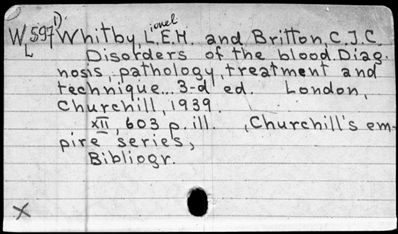 W 597 1) Whitby, L.ionel E.H. and Britton, C.J.C.
L Disorders of the blood. Diag-
nosis, pathology, treatment and
technique. 3-d ed. London,
Churchill, 1939.
XII, 603 p. ill. , (Churchill's em-
pire series,
Bibliogr.
X